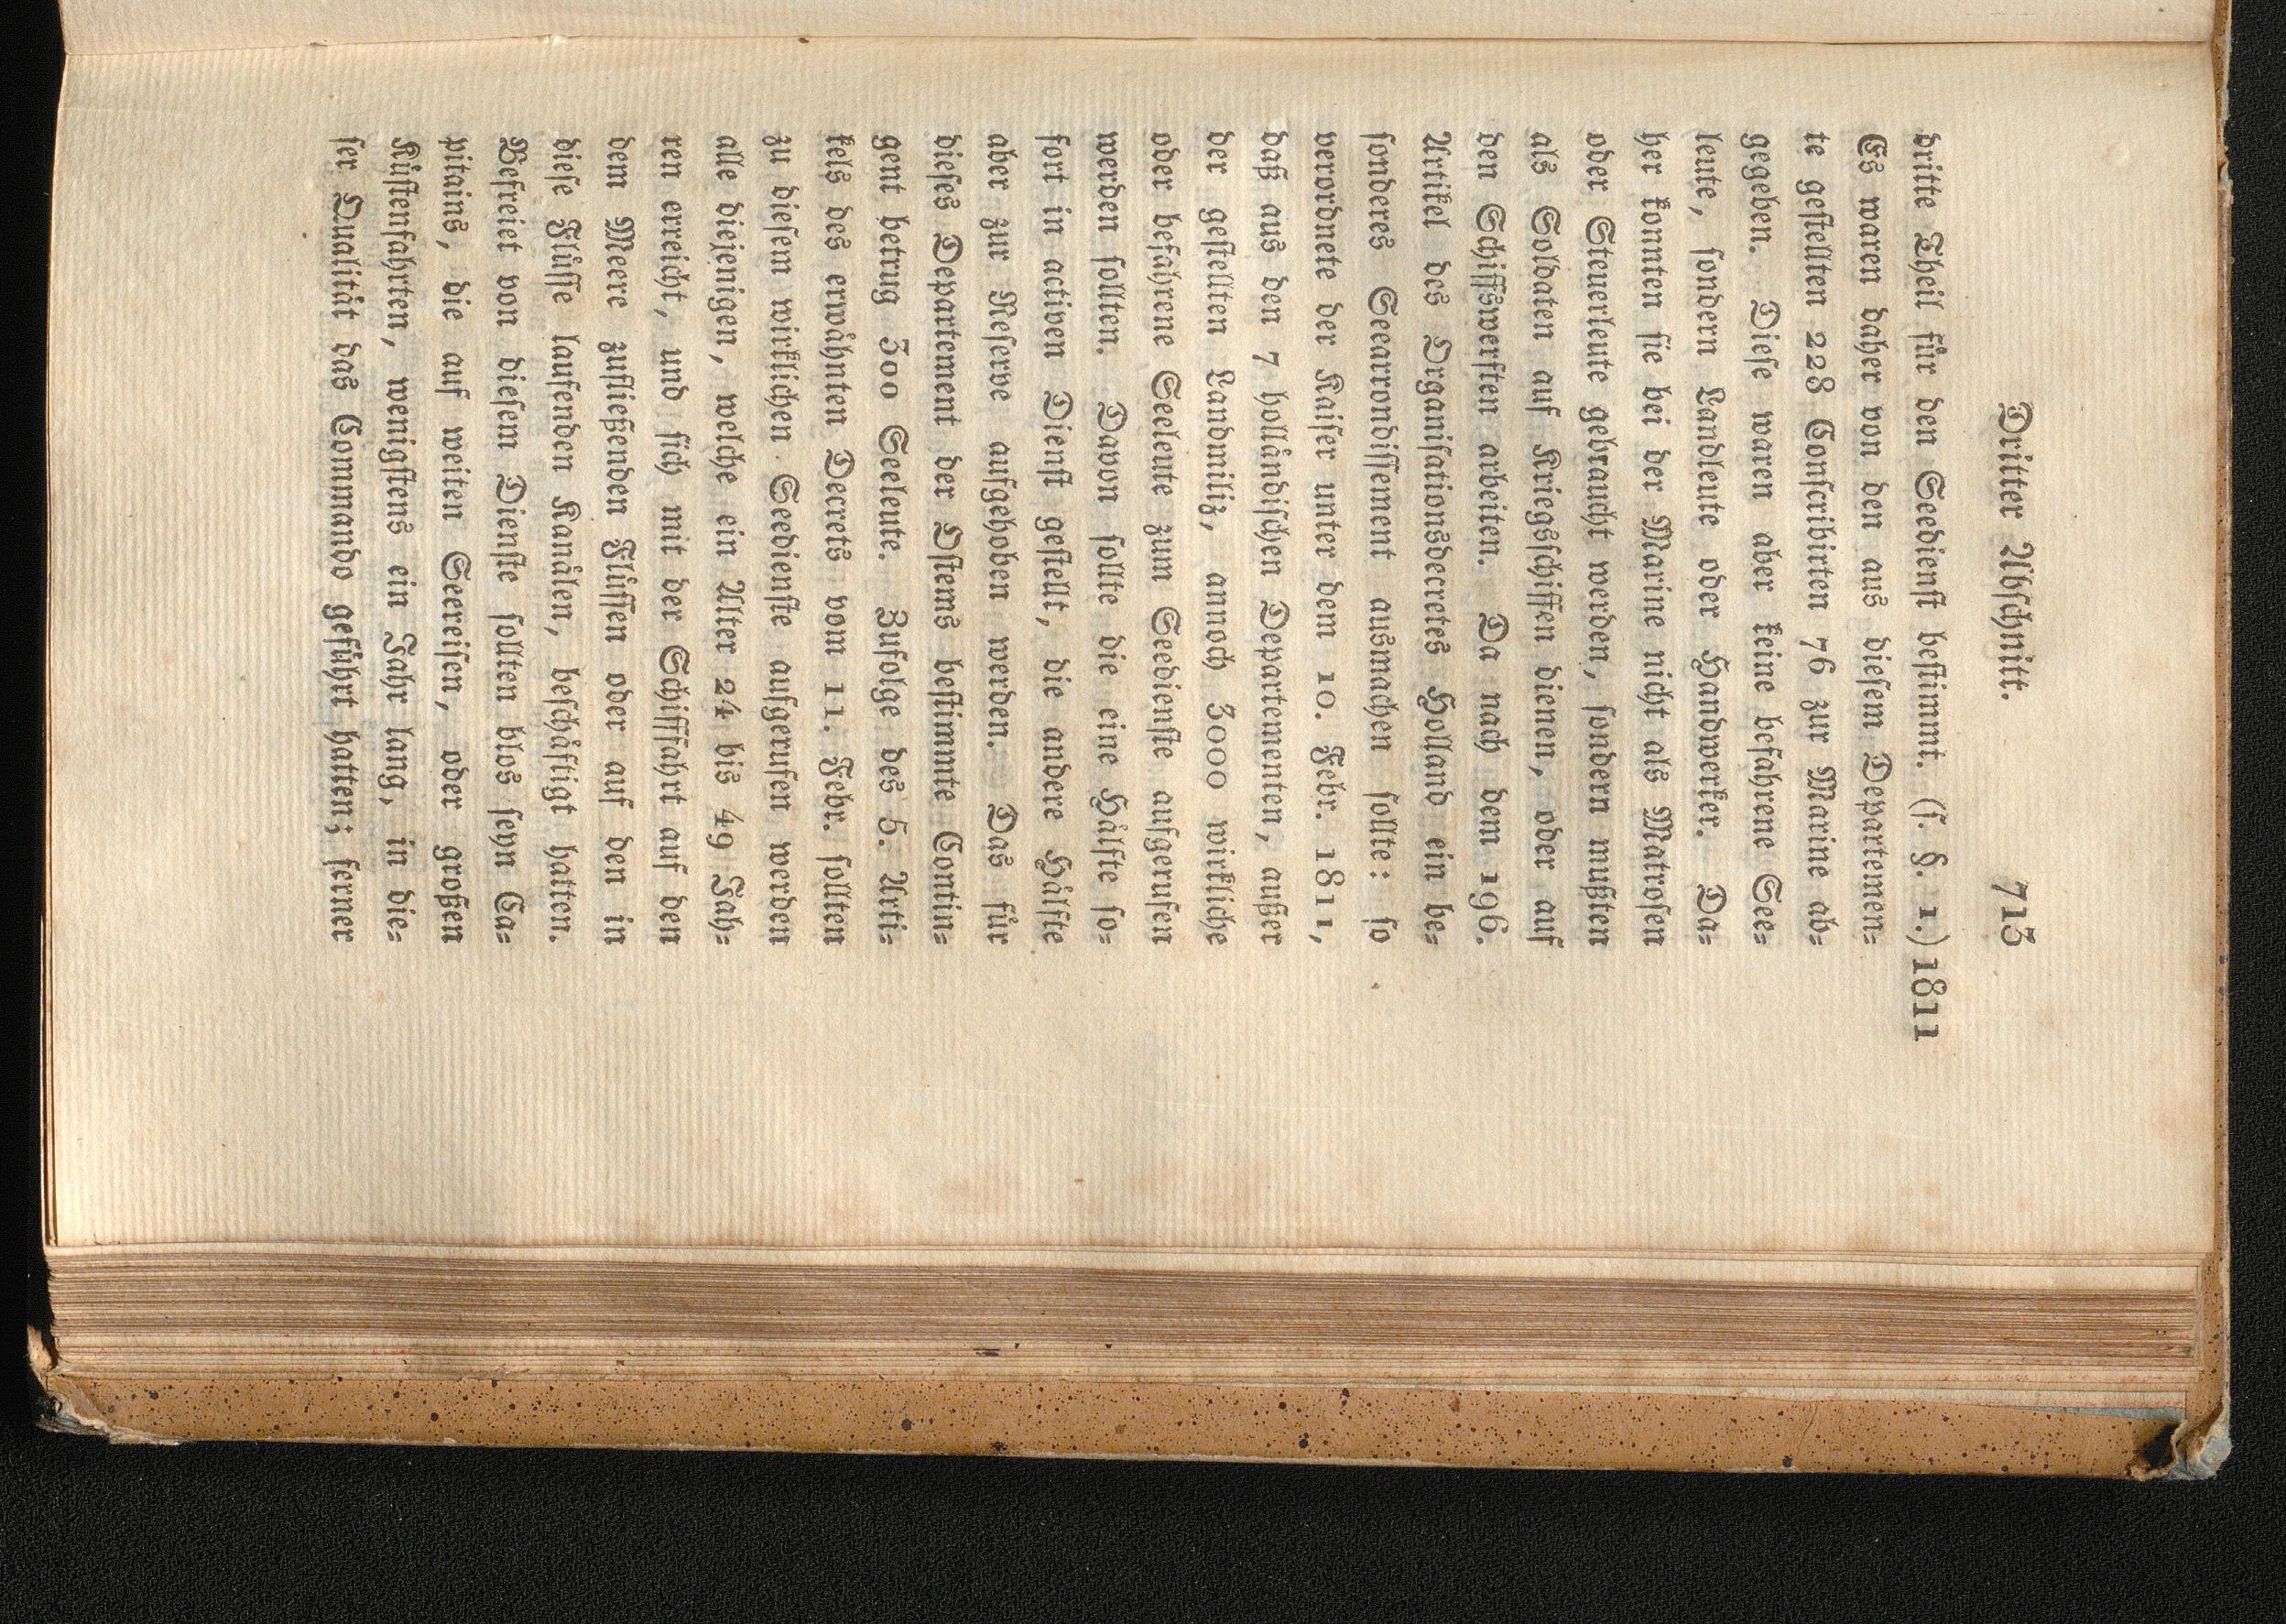 Dritter Abschnitt. 713
dritte Theil für den Seedienst bestimmt. (s. §. 1.) 1811
Es waren daher von den aus diesem Departemen-
te gestellten 228 Conscribirten 76 zur Marine ab-
gegeben. Diese waren aber keine befahrene See-
leute, sondern Landleute oder Handwerker. Da-
her konnten sie bei der Marine nicht als Matrosen
oder Steuerleute gebraucht werden, sondern mußten
als Soldaten auf Kriegsschiffen dienen, oder auf
den Schiffswerften arbeiten. Da nach dem 196.
Artikel des Organisationsdecretes Holland ein be-
sonderes Seearrondissement ausmachen sollte: so
verordnete der Kaiser unter dem 10. Febr. 1811,
daß aus den 7 holländischen Departementen, außer
der gestellten Landmiliz, annoch 3000 wirkliche
oder befahrene Seeleute zum Seedienste aufgerufen
werden sollten. Davon sollte die eine Hälfte so-
fort in activen Dienst gestellt, die andere Hälfte
aber zur Reserve aufgehoben werden. Das für
dieses Departement der Ostems bestimmte Contin-
gent betrug 300 Seeleute. Zufolge des 5. Arti-
kels des erwähnten Decrets vom 11. Febr. sollten
zu diesem wirklichen Seedienste aufgerufen werden
alle diejenigen, welche ein Alter 24 bis 49 Jah-
ren erreicht, und sich mit der Schifffahrt auf den
dem Meere zufließenden Flüssen oder auf den in
diese Flüsse laufenden Kanälen, beschäftigt hatten.
Befreiet von diesem Dienste sollten blos seyn Ca-
pitains, die auf weiten Seereisen, oder großen
Küstenfahrten, wenigstens ein Jahr lang, in die-
ser Qualität das Commando geführt hatten; ferner